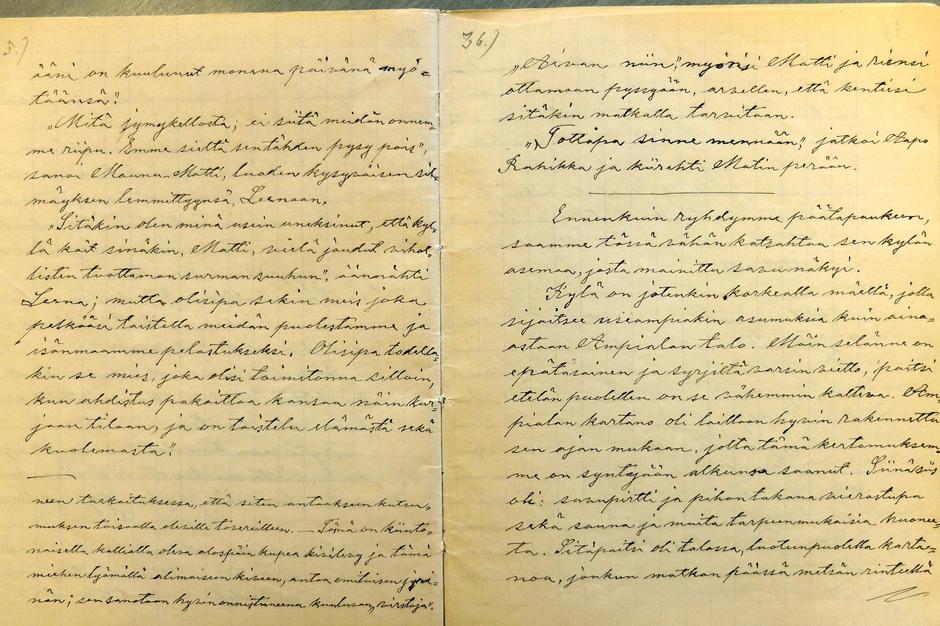 5.)
ääni on kuulunut monena päivänä myö-
täänsä".
"Mitä jymykellosta; ei siitä meidän onnem-
me riipu. Emme sieltä sentähden pysy pois",
sanoi Maunu-Matti, luoden kysyväisen sil-
mäyksen lemmittyynsä, Leenaan.
"Sitäkin olen minä usein uneksinut, että kyl-
lä kait sinäkin, Matti, vielä joudut vihol-
listen tuottaman surman suuhun", äännähti
Leena; mutta olisipa sekin mies joka
pelkääsi taistella meidän puolestamme ja
isänmaamme pelastukseksi. Olisipa todella-
kin se mies, joka olisi toimitonna silloin,
kun ahdistus pakoittaa kansaa näin kur-
jaan tilaan, ja on taistelu elämästä sekä
kuolemasta".
neen tarkoituksessa, että siten antaakseen kutsu-
muksen toisaalla oleville tovereilleen. — Tämä on kiinto-
naisella kalliolla oleva alospäin kupea kivilevy ja tämä
miehen lyömällä alimaiseen kiveen, antaa omituisen jyri-
nän; sen sanotaan hyvin onnistuneena kuuluvan, virstoja".
36.)
"Aivan niin", myönsi Matti ja riensi
ottamaan pyssyään, arvellen, että kentiesi
sitäkin matkalla tarvitaan.
"Tottapa sinne mennään", jatkoi Aapo
Rahikka ja kiirehti Matin perään.
Ennenkuin ryhdymme päätapaukseen,
saamme tässä vähän katsahtaa sen kylän
asemaa, josta mainittu savu näkyi.
Kylä on jotenkin korkealla mäellä, jolla
sijaitsee useampiakin asumuksia kuin aino-
astaan Ampialan talo. Mäen selänne on
epätasainen ja syrjiltä varsin vietto, paitsi
etelän puolelta on se vähemmin kalteva. Am-
pialan kartano oli laittaan hyvin rakennettu
sen ajan mukaan, jolta tämä kertomuksem-
me on syntyjään alkunsa saanut. Siinä siis
oli: savupirtti ja pihan takana vierastupa
sekä sauna ja muita tarpeenmukaisia huonee-
ta. Sitäpaitsi oli talossa, luoteenpuolella karta-
noa, jonkun matkan päässä metsän rinteellä